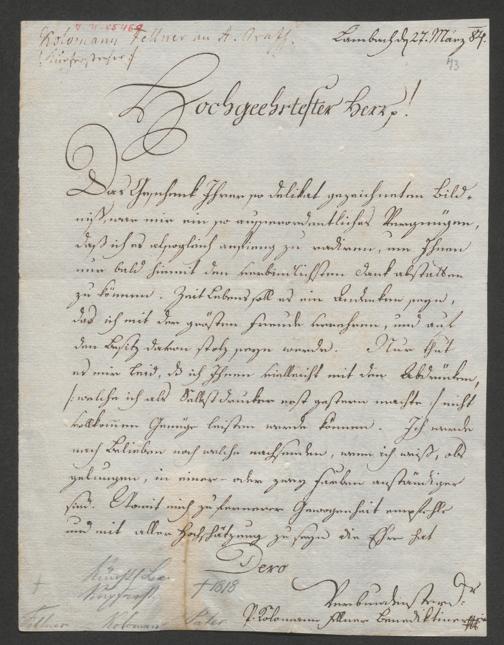 Kolomann Fellner an A. Graff.
(Kupferstecher)
Lambach d 27. März 84.
43
Hochgeehrtester Herr!
Das Geschenk Ihrer so delikat gezeichneten Bild-
niß, war mir ein so ausserordentliches Vergnügen,
daß ich es alsogleich anfieng zu radiren, um Ihnen
nur bald hiemit den verbindlichsten Dank abstatten
zu können. Zeit Lebens soll es ein Andenken seyn,
das ich mit der grösten Freude bewahren, und auf
den Besitz davon stolz seyn werde. Nur thut
es mir leid, daß ich Ihnen vielleicht mit den Abdrücken,
/: welche ich als Selbstdrucker erst gestern machte :/ nicht
vollkommen Genüge leisten werde können. Ich werde
nach Belieben noch welche nachsenden, wenn ich weiß, ob
gelungen, in einer- oder zwey Farben anständiger
sind. Womit mich zu fernerer Gewogenheit empfehle
und mit aller Hochschätzung zu seyn die Ehre hat
Dero
Verbundenster Dr
P. Kolomann Fellner Benediktiner
Kupferst. † 1818
Fellner Koloman Pater